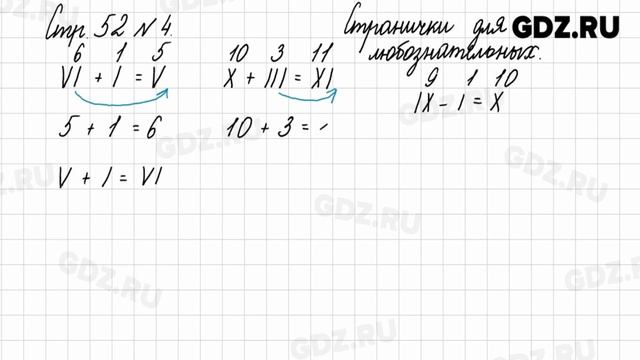 Стр. 52 № 4.
Странички для любознательных.
GDZ.RU
6 1 5
VI + I = V
5 + 1 = 6
V + I = VI
10 3 11
X + III = XI
10 + 3 =
9 1 10
IX - I = X
GDZ.RU
GDZ.RU
GDZ.RU
GDZ.RU
GDZ.RU
GDZ.RU